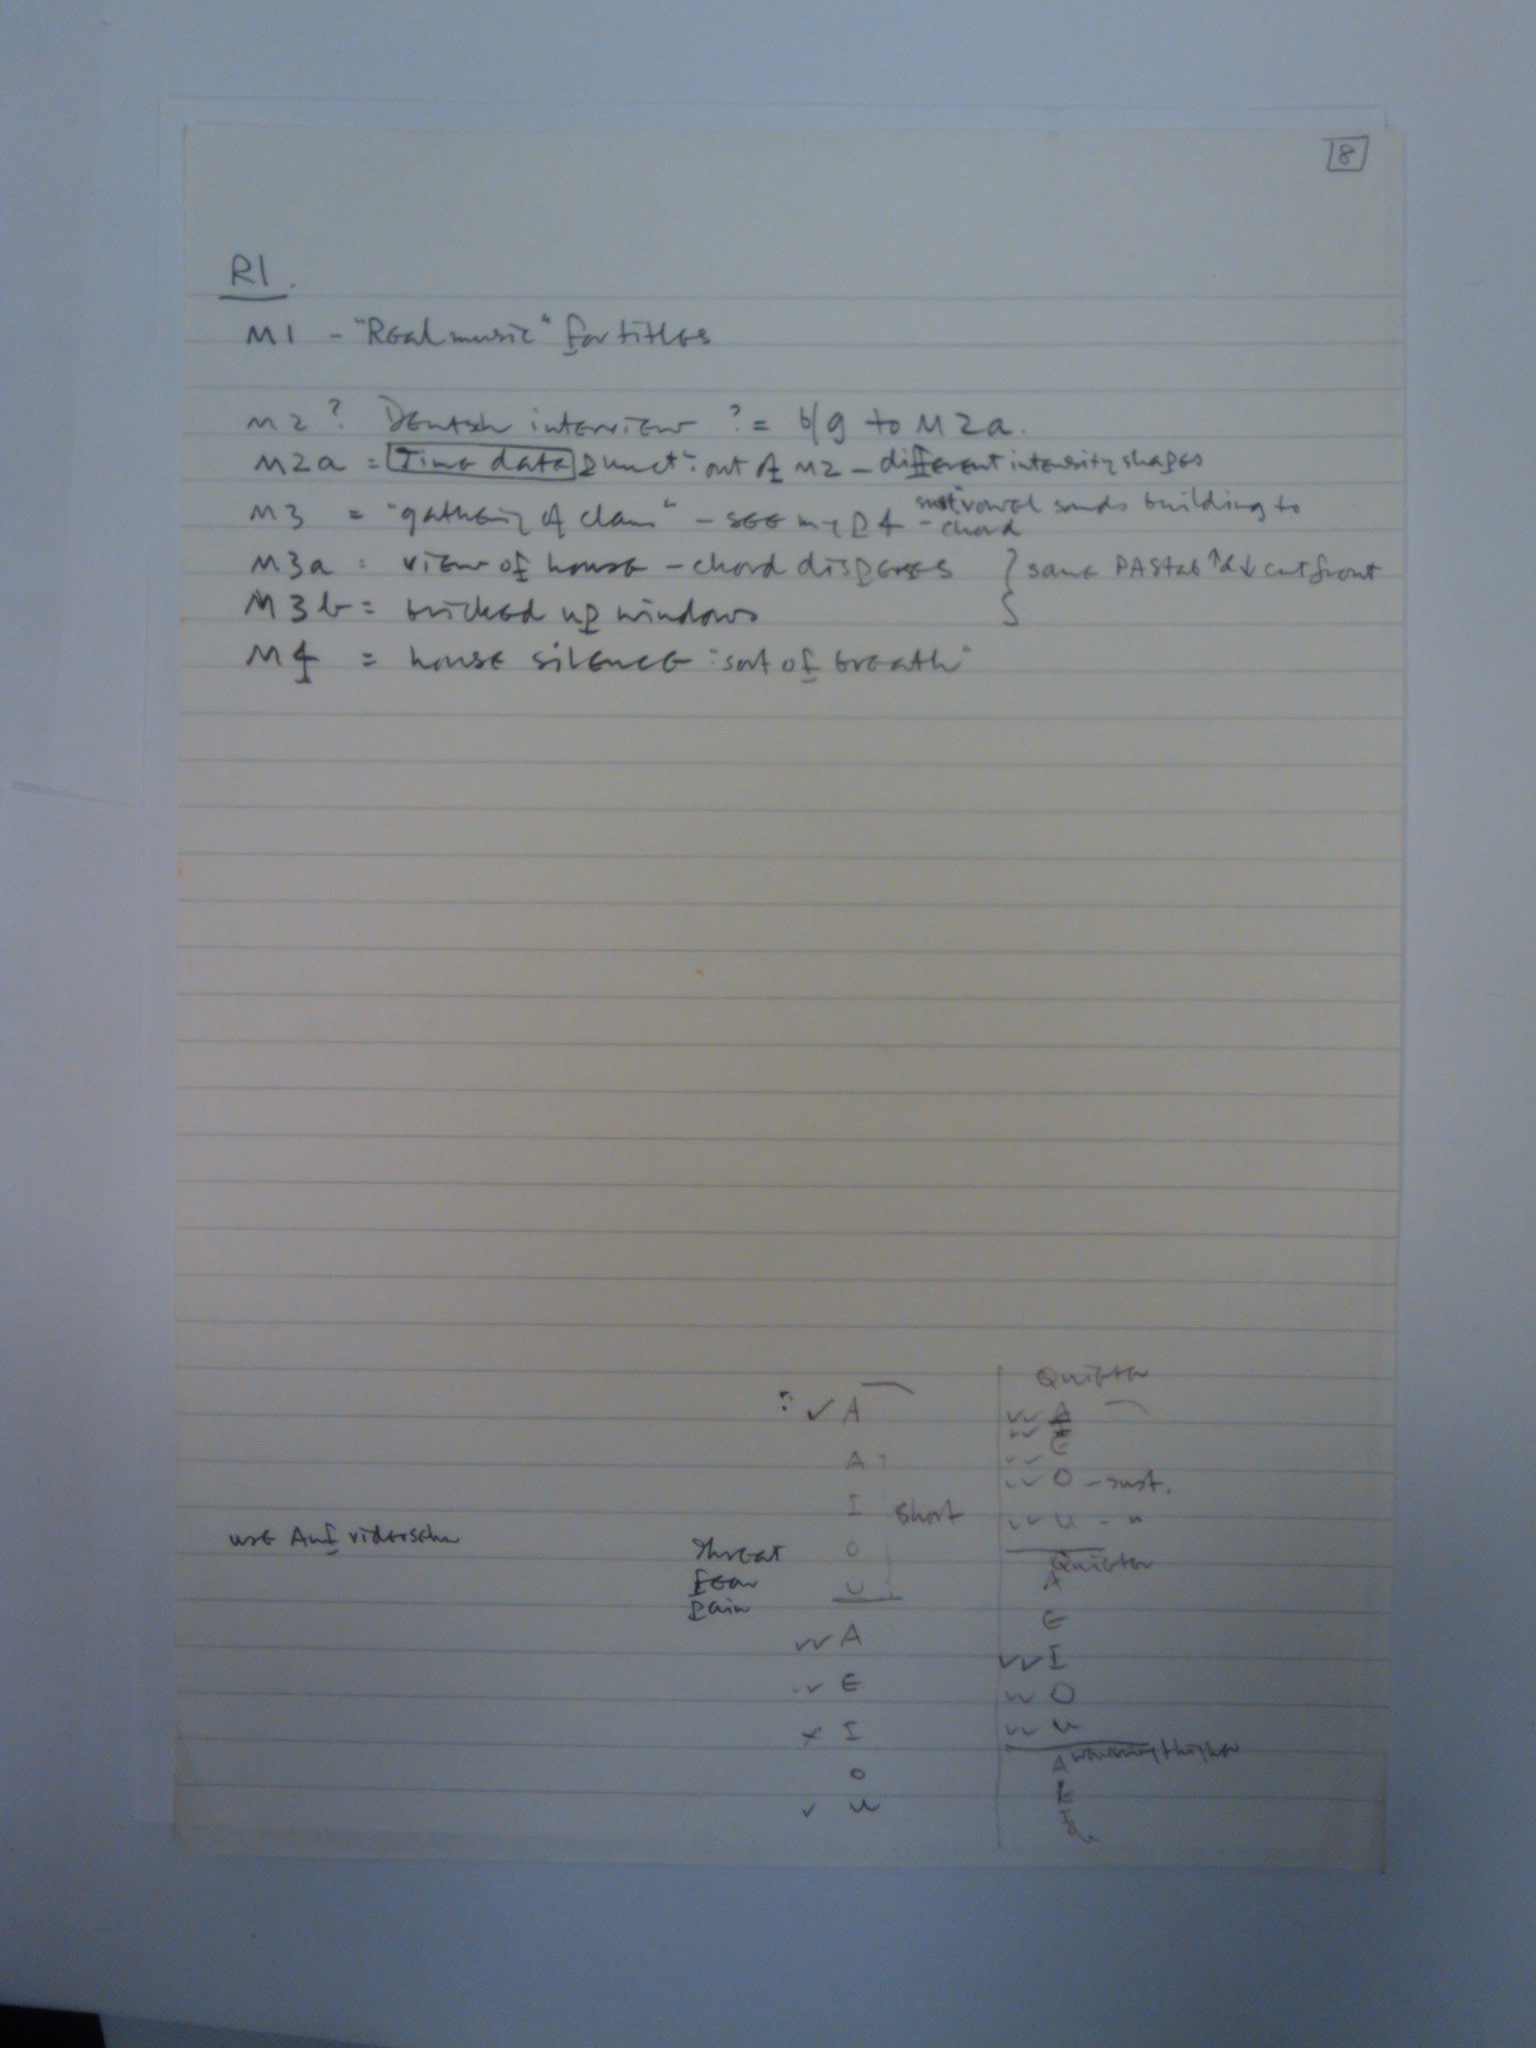 8
R1.
M1 - "Real music" for titles
M2? Deutsch interview ? = b/g to M2a.
M2a = Time data punct: out of M2 - different intensity shapes
M3 = "gathering of clan" - see my p4 - sust. vowel sounds building to
chord
M3a = view of house - chord disperses } same
M3b = bricked up windows
M4 = house silence "sort of breath"
Quieter
✓ A
✓✓ A
✓✓ E
A
✓✓ O - sust.
I
short
✓✓ U - "
use Auf vidersehn
Threat
O
Quieter
Fear
U
A
Pain
✓✓ A
E
✓✓ I
✓✓ E
✓✓ O
x I
✓✓ U
A wavering + higher
O
E
✓ U